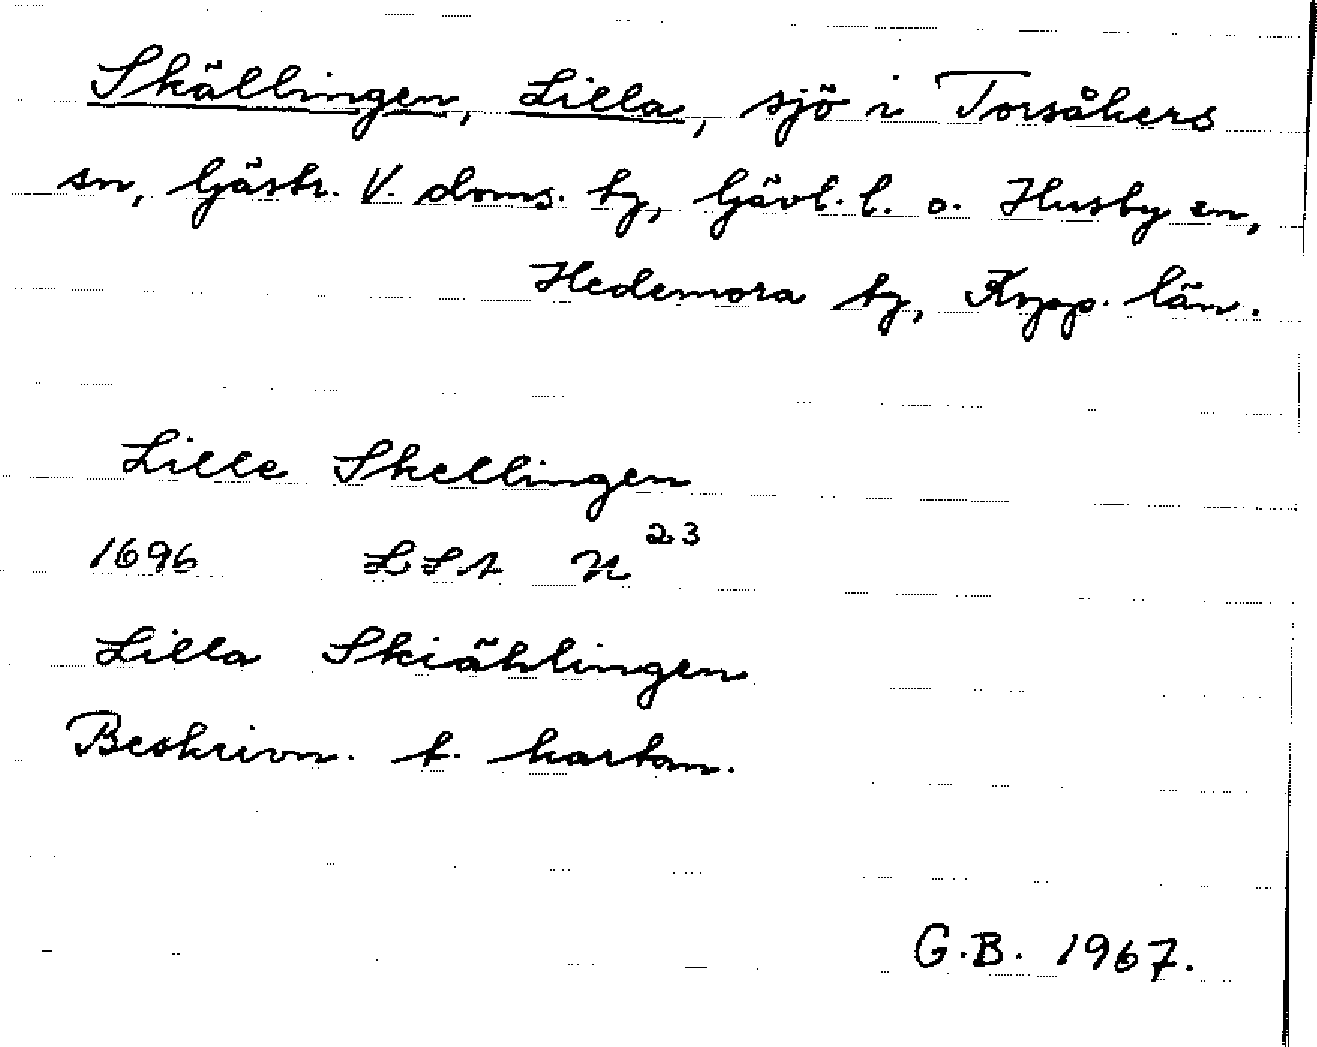 Skällingen, Lilla, sjö i Torsåkers
sn, Gästr. V. doms. tg, Gävl. l. o. Husby sn,
Hedemora tg, Kopp. län.
Lille Skellingen
1696 LSA N 23
Lilla Skiählingen
Beskrivn. t. kartan.
G.B. 1967.